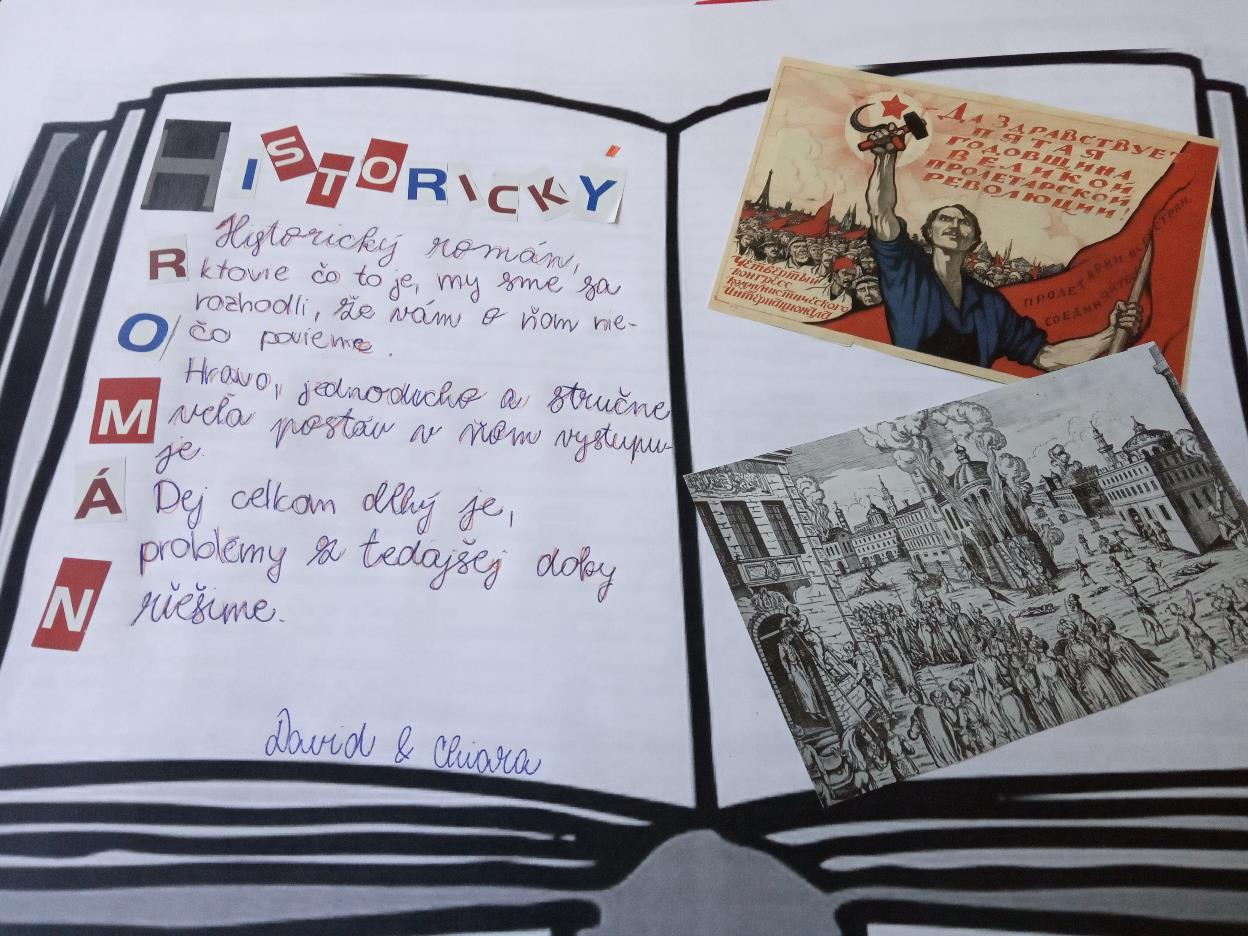 HISTORICKÝ
ROMÁN
Hystorický román,
ktovie čo to je, my sme sa
rozhodli, že vám o ňom nie-
čo povieme.
Hravo, jednoducho a stručne
veľa postáv v ňom vystupu-
je.
Dej celkom dlhý je,
problémy z tedajšej doby
riešime.
David & Chiara
ДА ЗДРАВСТВУЕТ
ПЯТАЯ
ГОДОВЩИНА
ВЕЛИКОЙ
ПРОЛЕТАРСКОЙ
РЕВОЛЮЦИИ!
Четвертый
конгресс
коммунистического
Интернационала
ПРОЛЕТАРИИ ВСЕХ СТРАН,
СОЕДИНЯЙТЕСЬ